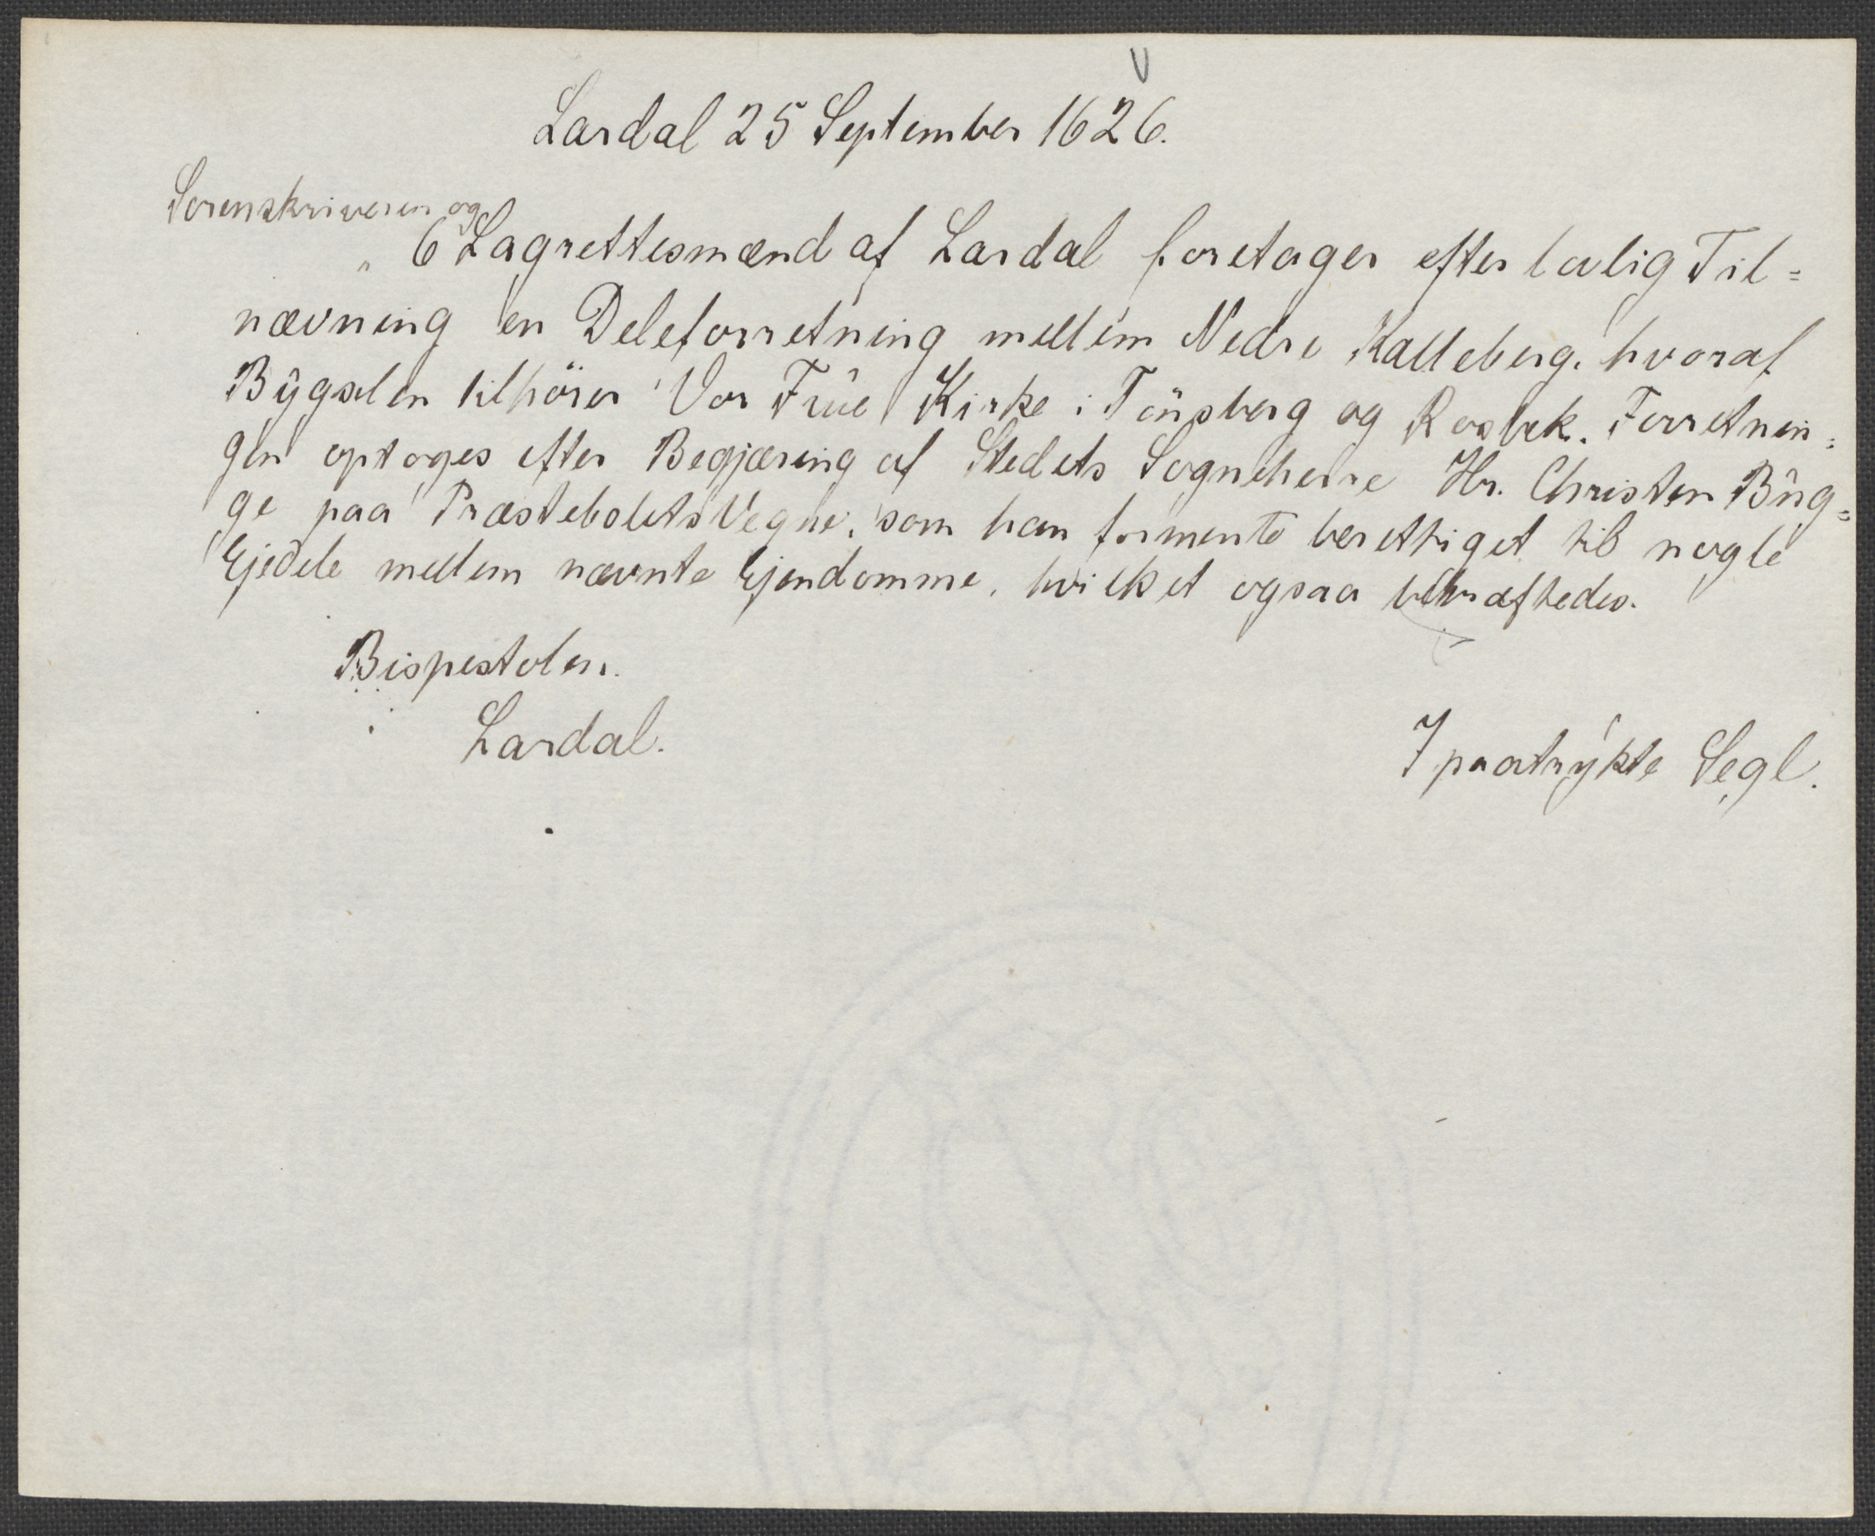 Lardal 25 September 1626.
Sorenskriveren og
6 Lagrettesmænd af Lardal foretager efter lovlig Til=
nævning en Deleforretning mellem Nedre Kalleberg, hvoraf
Bygselen tilhörer Vor Frue Kirke i Tönsberg og Rosbek. Forretnin=
gen optoges efter Begjæring af Stedets Sogneherre Hr. Christen Byg=
ge paa Præstebolets Vegne, som han formente berettiget til nogle
Ejedele mellem nævnte Ejendomme, hvilket ogsaa bekræftedes.
Bispestolen.
Lardal.
7 paatrykte Segl.